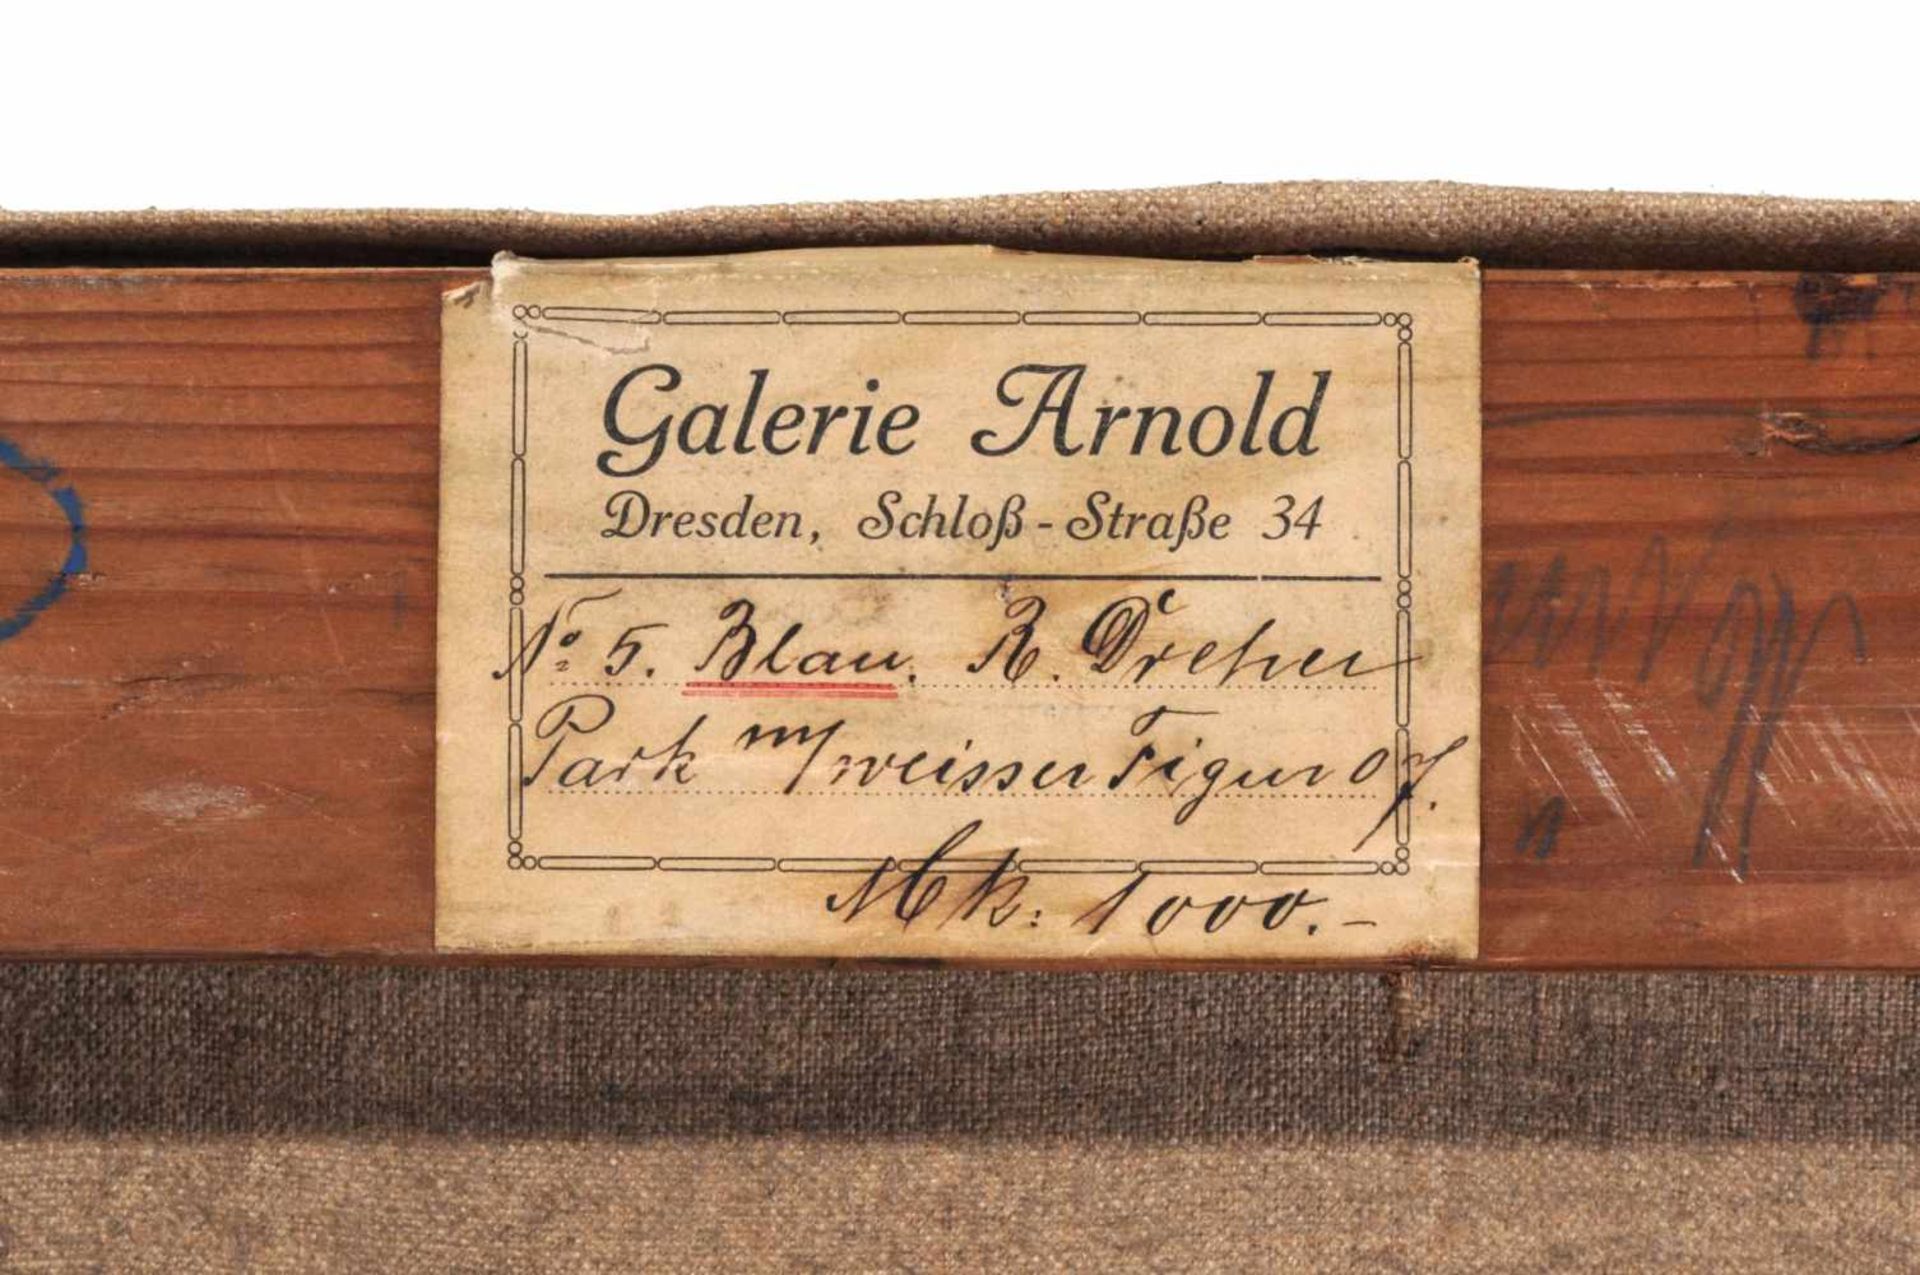 Galerie Arnold
Dresden, Schloß-Straße 34
No 5. Blau. R. Dreher
Park m/weisser Figur
Mk: 1000.-